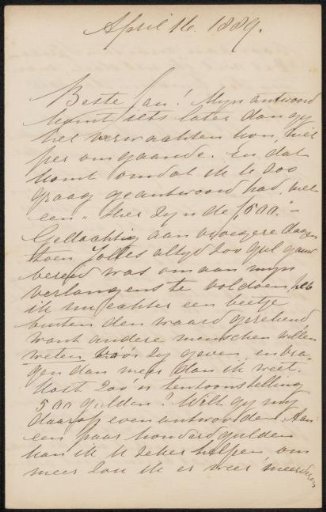 April 16. 1889.
Beste Jan! Mijn antwoord
komt iets later dan gij
het verwachten kon, niet
per omgaande. En dat
komt omdat ik te zoo
graag geantwoord had, met
een "hier zijn de ƒ500."-
Gedachtig aan vroegere dagen
toen Jolles altijd zoo gul
bereid was om aan mijn
verlangens te voldoen, heb
ik nu echter een beetje
buiten den waard gerekend
want andere menschen willen
weten vóór zij geven, en vra-
gen dan meer dan ik weet.
Kost zoo'n tentoonstelling
500 gulden? Wilt gij mij
daarop even antwoorden. Aan
een paar honderd gulden
kan ik U zeker helpen, om
meer kan ik er weer